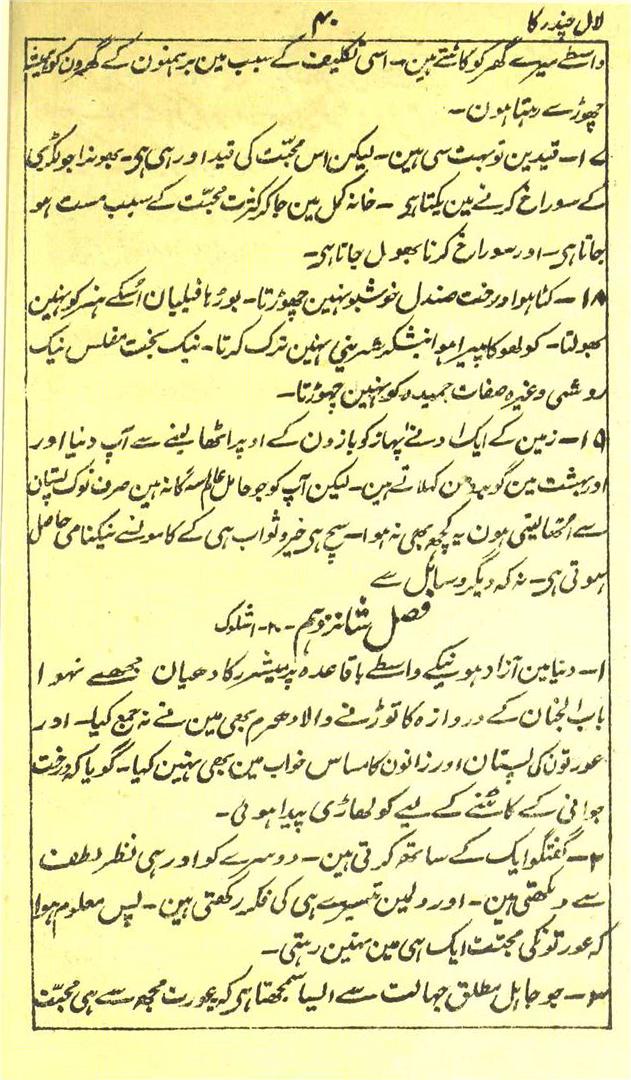 لال چندر کا
۴۰
واسطے میرے گھر کو کاٹتے ہین۔ اسی تکلیف کے سبب مین برہمنون کے گھرون کو ہمیشہ
چھوڑے رہتا ہون۔
۱۷۔ قیدین تو بہت سی ہین۔ لیکن اس محبّت کی قید اور ہی ہی۔ بھونرا جو لکڑی
کے سوراخ کرنے مین یکتا ہی۔ خانہ گل مین جا کر کثرت محبّت کے سبب مست ہو
جاتا ہی۔ اور سوراخ کرنا بھول جاتا ہی۔
۱۸۔ کٹا ہوا درخت صندل خوشبو نہین چھوڑتا۔ بوڑھا فیل اُسکے ہنر کو نہین
بھولتا۔ کولھو کا پیرا ہوا نیشکر شیرینی نہین ترک کرتا۔ نیک بخت مفلس نیک
روشی وغیرہ صفات حمیدہ کو نہین چھوڑتا۔
۱۹۔ زمین کے ایک ادنے پہاڑ کو بازون کے اوپر اٹھا لینے سے آپ دنیا اور
اور بہشت مین گوبردھن کہلاتے ہین۔ لیکن آپ کو جو حامل عالم سہ گانہ ہین صرف نوک پستان
سے اٹھا لیتی ہون یہ کچھ بھی نہ ہوا۔ سچ ہی خیر و ثواب ہی کے کامونسے نیکنامی حاصل
ہوتی ہی۔ نہ کہ دیگر وسائل سے
فصل شانزدہم۔ ۲۰۔ اشلوک
۱۔ دنیا مین آزاد ہونیکے واسطے باقاعدہ پرمیشر کا دھیان مجھسے نہوا
باب الجنان کے دروازہ کا توڑنے والا دھرم بھی مین نے نہ جمع کیا۔ اور
عورتون کی پستان اور زانون کا مساس خواب مین بھی نہین کیا۔ گویا کہ درخت
جوانی کے کاٹنے کے لیے کولھاڑی پیدا ہوئی۔
۲۔ گفتگو ایک کے ساتھ کرتی ہین۔ دوسرے کو اور ہی نظر لطف
سے دیکھتی ہین۔ اور دلمین تیسرے ہی کی فکر رکھتی ہین۔ پس معلوم ہوا
کہ عورتونکی محبّت ایک ہی مین نہین رہتی۔
۳۔ جو جاہل مطلق جہالت سے ایسا سمجھتا ہی کہ عورت مجھ سے ہی محبّت